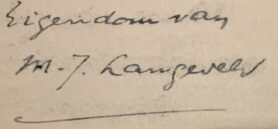 Eigendom van
M. J. Langeveld